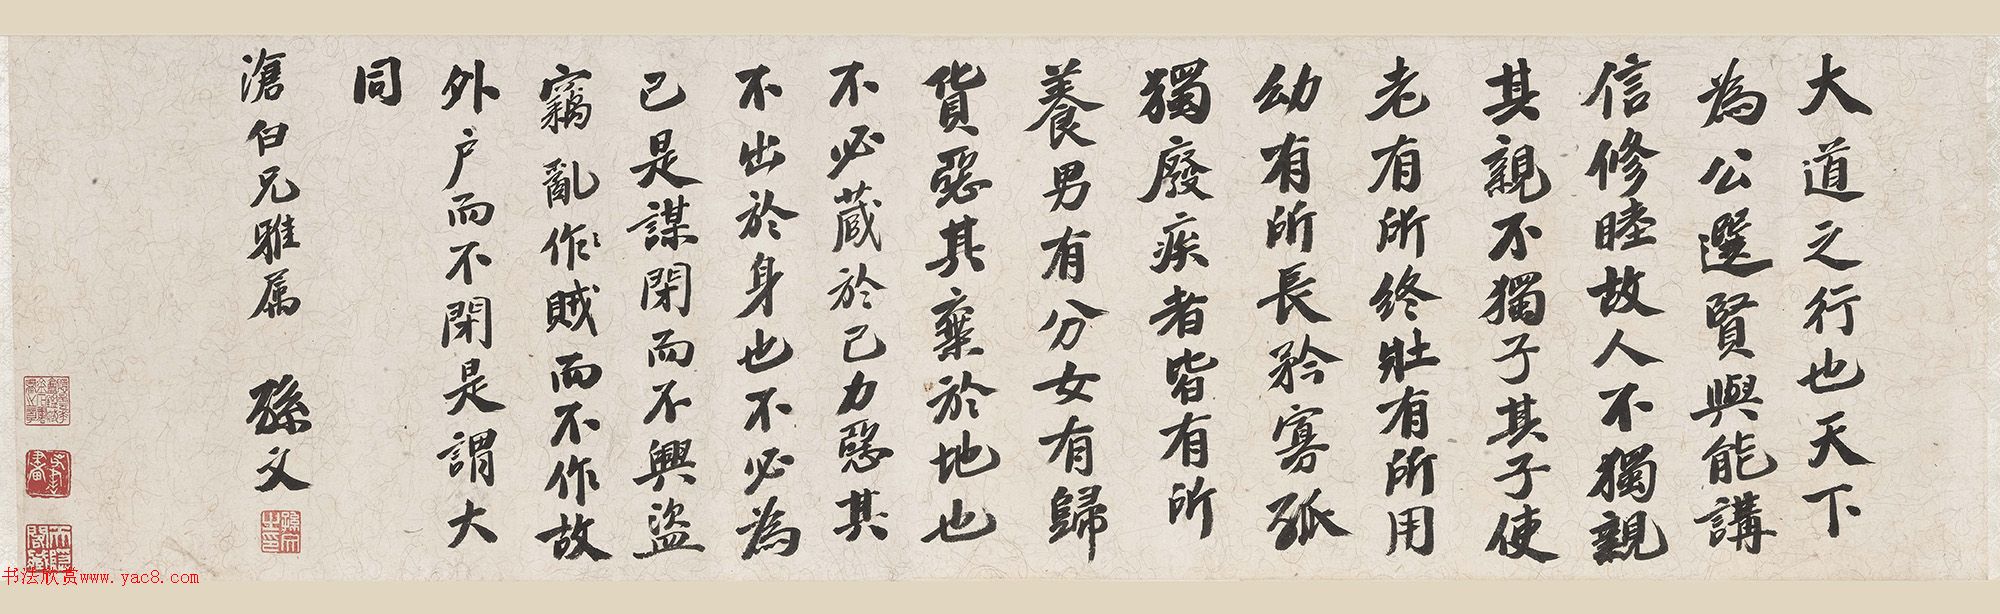 大道之行也天下
為公選賢與能講
信修睦故人不獨親
其親不獨子其子使
老有所終壯有所用
幼有所長矜寡孤
獨廢疾者皆有所
養男有分女有歸
貨惡其棄於地也
不必藏於己力惡其
不出於身也不必為
己是謀閉而不興盜
竊亂作賊而不作故
外户而不閉是謂大
同
滄白兄雅属 孫文
孫文之印
书法欣赏www.yac8.com